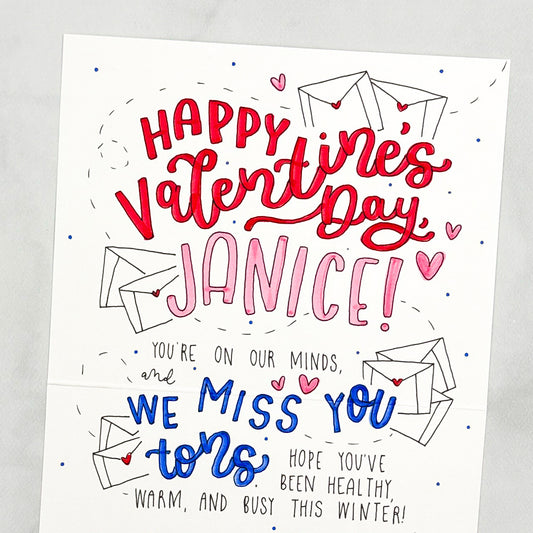 HAPPY
Valentine's
Day,
JANICE!
YOU'RE ON OUR MINDS,
and
WE MISS YOU
tons. HOPE YOU'VE
BEEN HEALTHY,
WARM, AND BUSY THIS WINTER!